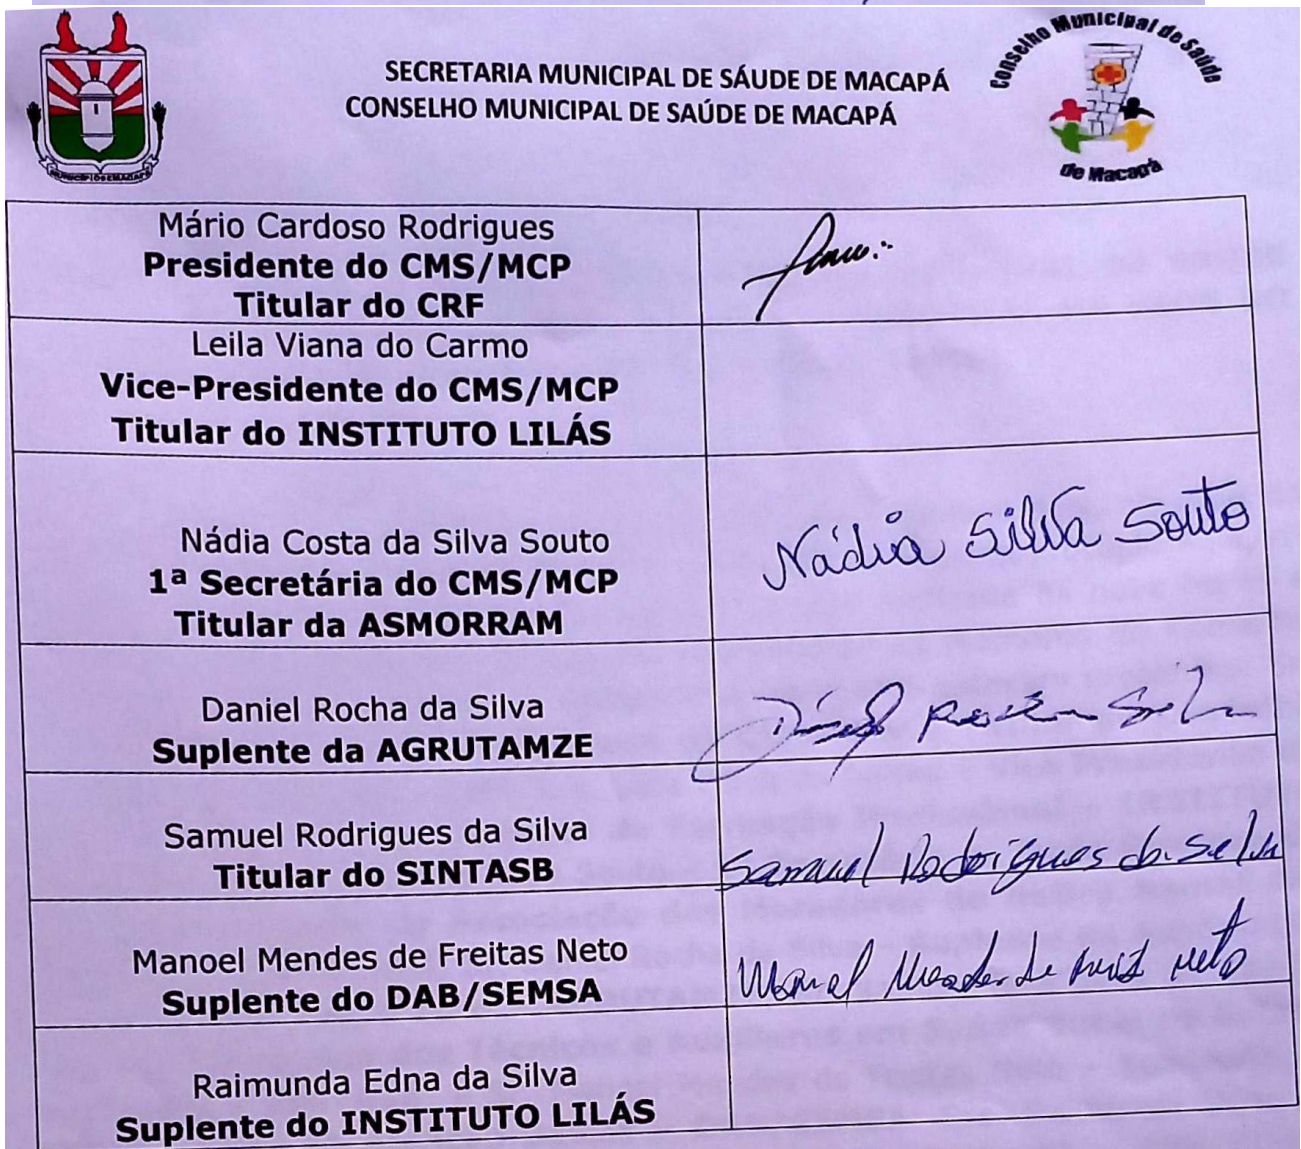 SECRETARIA MUNICIPAL DE SÁUDE DE MACAPÁ
CONSELHO MUNICIPAL DE SAÚDE DE MACAPÁ
Conselho Municipal de Saúde
de Macapá
Mário Cardoso Rodrigues
Presidente do CMS/MCP
Titular do CRF
Leila Viana do Carmo
Vice-Presidente do CMS/MCP
Titular do INSTITUTO LILÁS
Nádia Costa da Silva Souto
1ª Secretária do CMS/MCP
Titular da ASMORRAM
Nádia Silva Souto
Daniel Rocha da Silva
Suplente da AGRUTAMZE
Samuel Rodrigues da Silva
Titular do SINTASB
Samuel Rodrigues da Silva
Manoel Mendes de Freitas Neto
Suplente do DAB/SEMSA
Manoel Mendes de Neto
Raimunda Edna da Silva
Suplente do INSTITUTO LILÁS